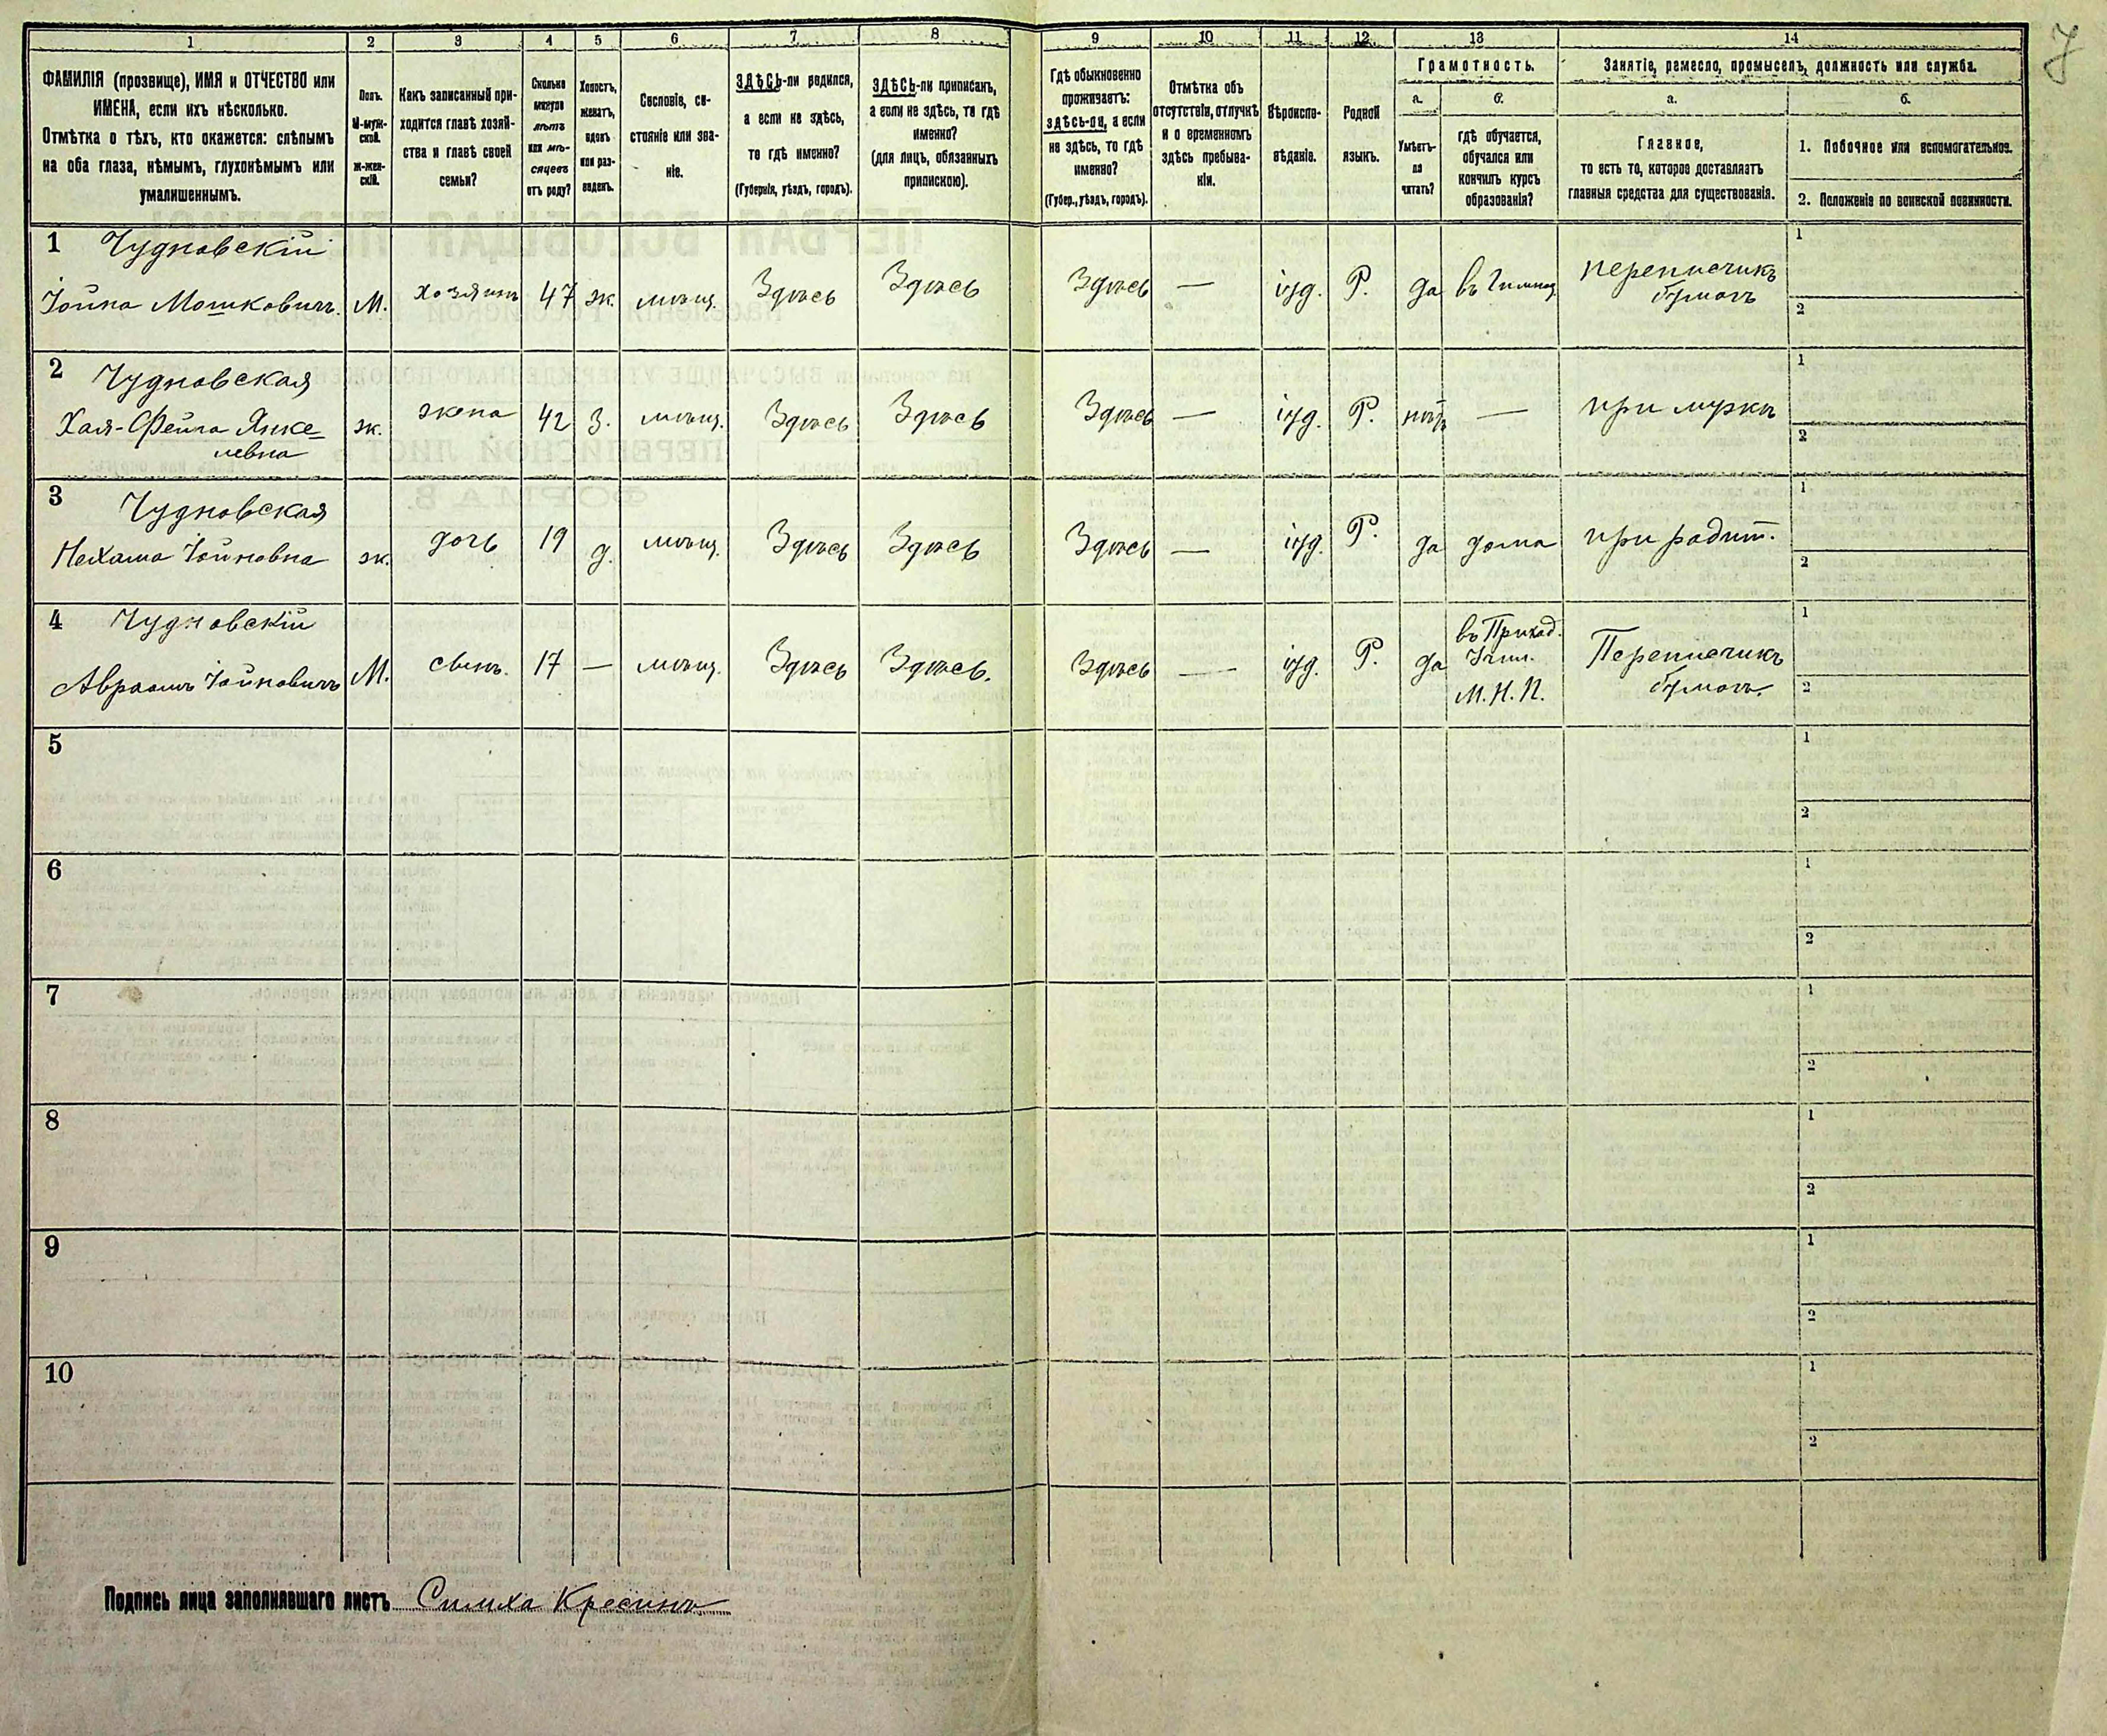 7
1 2 3 4 5 6 7 8 9 10 11 12 13 14
ФАМИЛІЯ (прозвище), ИМЯ и ОТЧЕСТВО или
ИМЕНА, если ихъ нѣсколько.
Отмѣтка о тѣхъ, кто окажется: слѣпымъ
на оба глаза, нѣмымъ, глухонѣмымъ или
умалишеннымъ.
Полъ.
М-муж-
ской.
Ж-жен-
скій.
Какъ записанный при-
ходится главѣ хозяй-
ства и главѣ своей
семьи?
Сколько
минуло
лѣтъ
или мѣ-
сяцевъ
отъ роду?
Холостъ,
женатъ,
вдовъ
или раз-
веденъ.
Сословіе, со-
стояніе или зва-
ніе.
ЗДѢСЬ-ли родился,
а если не здѣсь,
то гдѣ именно?
(Губернія, уѣздъ, городъ).
ЗДѢСЬ-ли приписанъ,
а если не здѣсь, то гдѣ
именно?
(для лицъ, обязанныхъ
припискою).
Гдѣ обыкновенно
проживаетъ:
здѣсь-ли, а если
не здѣсь, то гдѣ
именно?
(Губер., уѣздъ, городъ).
Отмѣтка объ
отсутствіи, отлучкѣ
и о временномъ
здѣсь пребыва-
ніи.
Вѣроиспо-
вѣданіе.
Родной
языкъ.
Грамотность.
а.
Умѣетъ-
ли
читать?
б.
гдѣ обучается,
обучался или
кончилъ курсъ
образованія?
Занятіе, ремесло, промыселъ, должность или служба.
а.
Главное,
то есть то, которое доставляетъ
главныя средства для существованія.
б.
1. Побочное или вспомогательное.
2. Положеніе по воинской повинности.
1 Чудновскій
Іойна Мошковичъ. М. хозяинъ 47 ж. мѣщ. Здѣсь Здѣсь Здѣсь — іуд. Р. да въ Гимназ. переписчикъ
бумагъ
1
2
2 Чудновская
Хая-Фейга Янке=
левна ж. жена 42 З. мѣщ. Здѣсь Здѣсь Здѣсь — іуд. Р. нѣтъ — при мужѣ
1
2
3 Чудновская
Нехама Іойновна ж. дочь 19 д. мѣщ. Здѣсь Здѣсь Здѣсь — іуд. Р. да дома при родит.
1
2
4 Чудновскій
Авраамъ Іойновичъ М. сынъ. 17 — мѣщ. Здѣсь Здѣсь. Здѣсь — іуд. Р. да въ Приход.
Учил.
М. Н. П.
Переписчикъ
бумагъ.
1
2
5
1
2
6
1
2
7
1
2
8
1
2
9
1
2
10
1
2
Подпись лица заполнявшаго листъ Симха Кресинъ